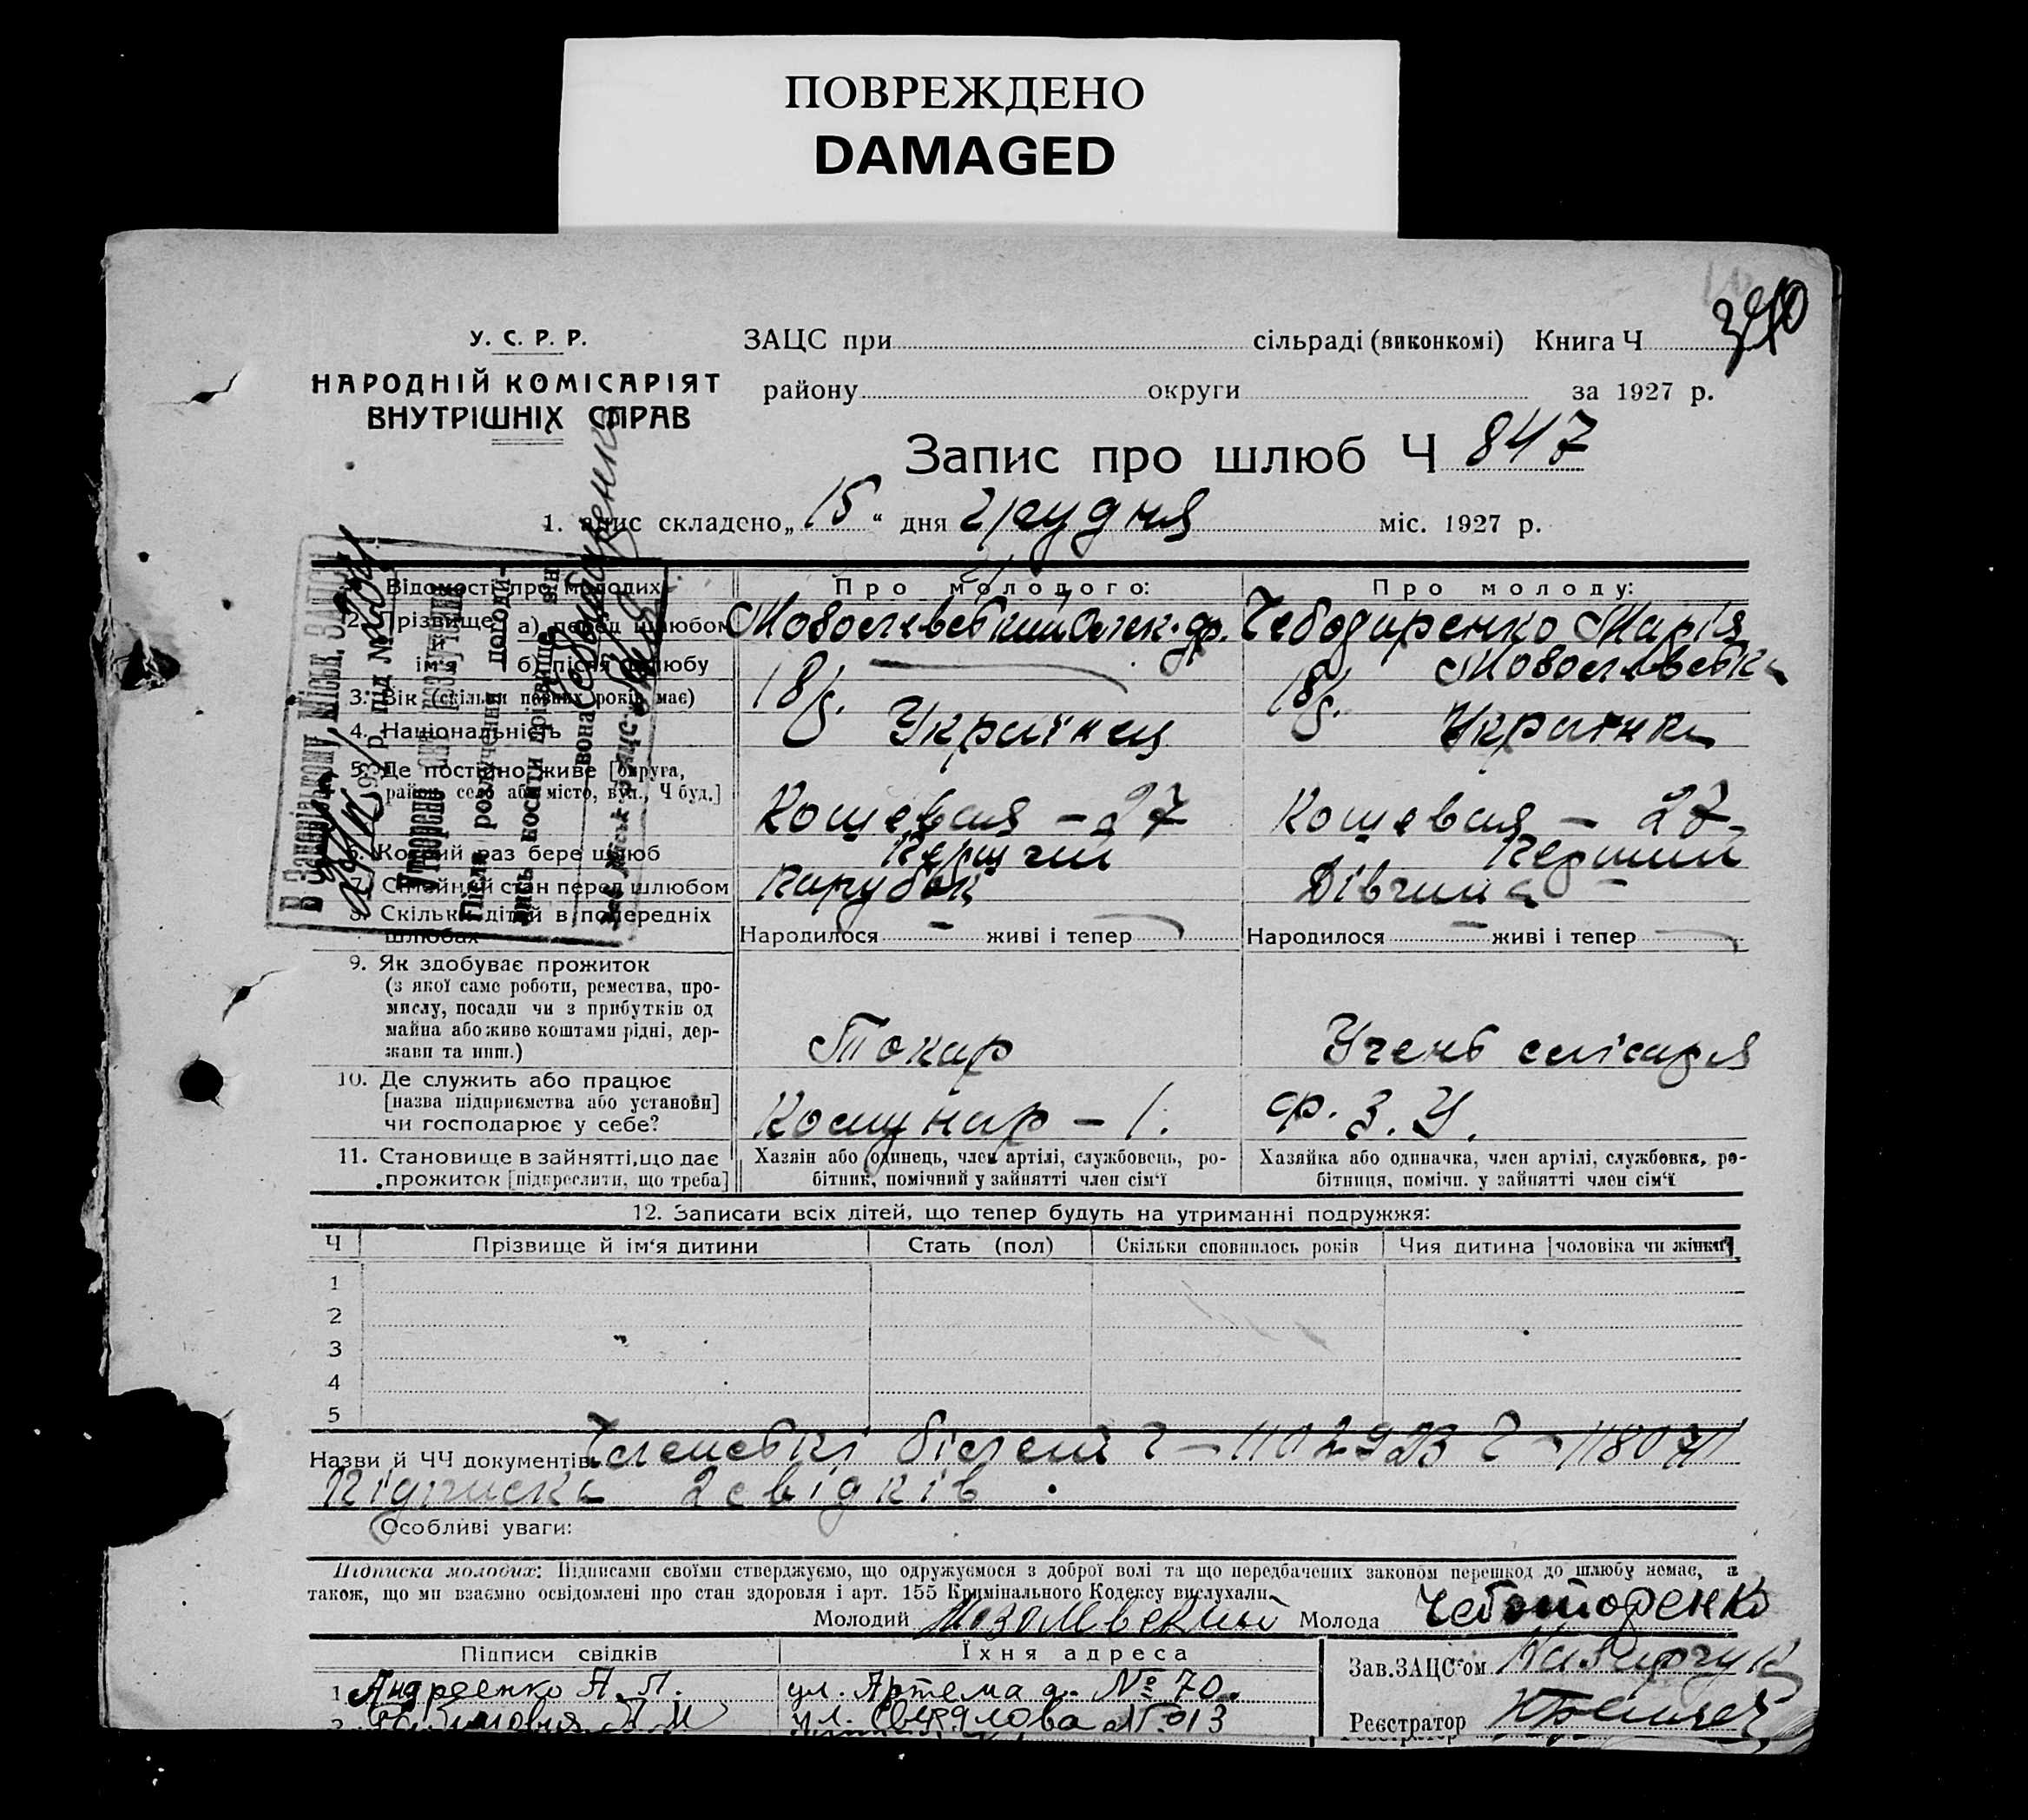 ПОВРЕЖДЕНО
DAMAGED
У. С. Р. Р.
НАРОДНІЙ КОМІСАРІЯТ
ВНУТРІШНІХ СПРАВ
ЗАЦС при сільраді (виконкомі) Книга Ч
району округи за 1927 р.
Запис про шлюб Ч 847
1. апис складено „ 15 “ дня Грудня міс. 1927 р.
Відомості про молодих
Про молодого:
Про молоду:
2. Прізвище й ім'я
а) перед шлюбом
Чебодаренко Марія
б) після шлюбу
3. Вік (скільки певних років має)
18
18
4. Національність
Українец
Українка
5. Де постійно живе [округа, район, село або місто, вул., Ч буд.]
Кошевая – 27
Кошевая – 27
6. Котрий раз бере шлюб
Перший
Перший
7. Сімейний стан перед шлюбом
Парубок
Дівчина
8. Скільки дітей в попередніх шлюбах
Народилося – живі і тепер
Народилося – живі і тепер
9. Як здобуває прожиток
(з якої саме роботи, ремества, про-
мислу, посади чи з прибутків од
майна або живе коштами рідні, дер-
жави та инш.)
Токар
Учень слісаря
10. Де служить або працює
[назва підприємства або установи]
чи господарює у себе?
Комунар – 1.
Ф. З. У.
11. Становище в зайнятті, що дає
прожиток [підкреслити, що треба]
Хазяїн або одинець, член артілі, службовець, ро-
бітник, помічний у зайнятті член сім‘ї
Хазяйка або одиначка, член артілі, службовка, ро-
бітниця, помічн. у зайнятті член сім‘ї
12. Записати всіх дітей, що тепер будуть на утриманні подружжя:
Ч Прізвище й ім‘я дитини Стать (пол) Скільки сповнилось років Чия дитина [чоловіка чи жінки]
1
2
3
4
5
Назви й ЧЧ документів Членські білети
Підписка 2 свідків
Особливі уваги:
Підписка молодих: Підписами своїми стверджуємо, що одружуємося з доброї волі та що передбачених законом перешкод до шлюбу немає, а
також, що ми взаємно освідомлені про стан здоровля і арт. 155 Кримінального Кодексу вислухали
Молодий Молода Чеботоренко
Підписи свідків Їхня адреса
Зав. ЗАЦС‘ом
1 Андреенко А. Л. ул. Артема д. № 70.
ул. Свердлова № 13
Реєстратор